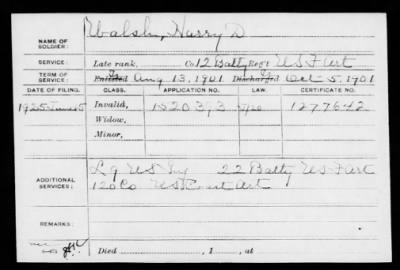 NAME OF SOLDIER: Walsh, Harry D
SERVICE: Late rank, Co 12 Batty Reg't US F Art
TERM OF SERVICE: Enlisted Aug 13, 1901 Discharged Oct 5, 1901
DATE OF FILING. CLASS. APPLICATION NO. LAW. CERTIFICATE NO.
1925 June 8 Invalid, 1520393 1277642
Widow,
Minor,
ADDITIONAL SERVICES: US 22 Batty US F Art
120 Co US Coast Art
REMARKS:
Died , 1 , at